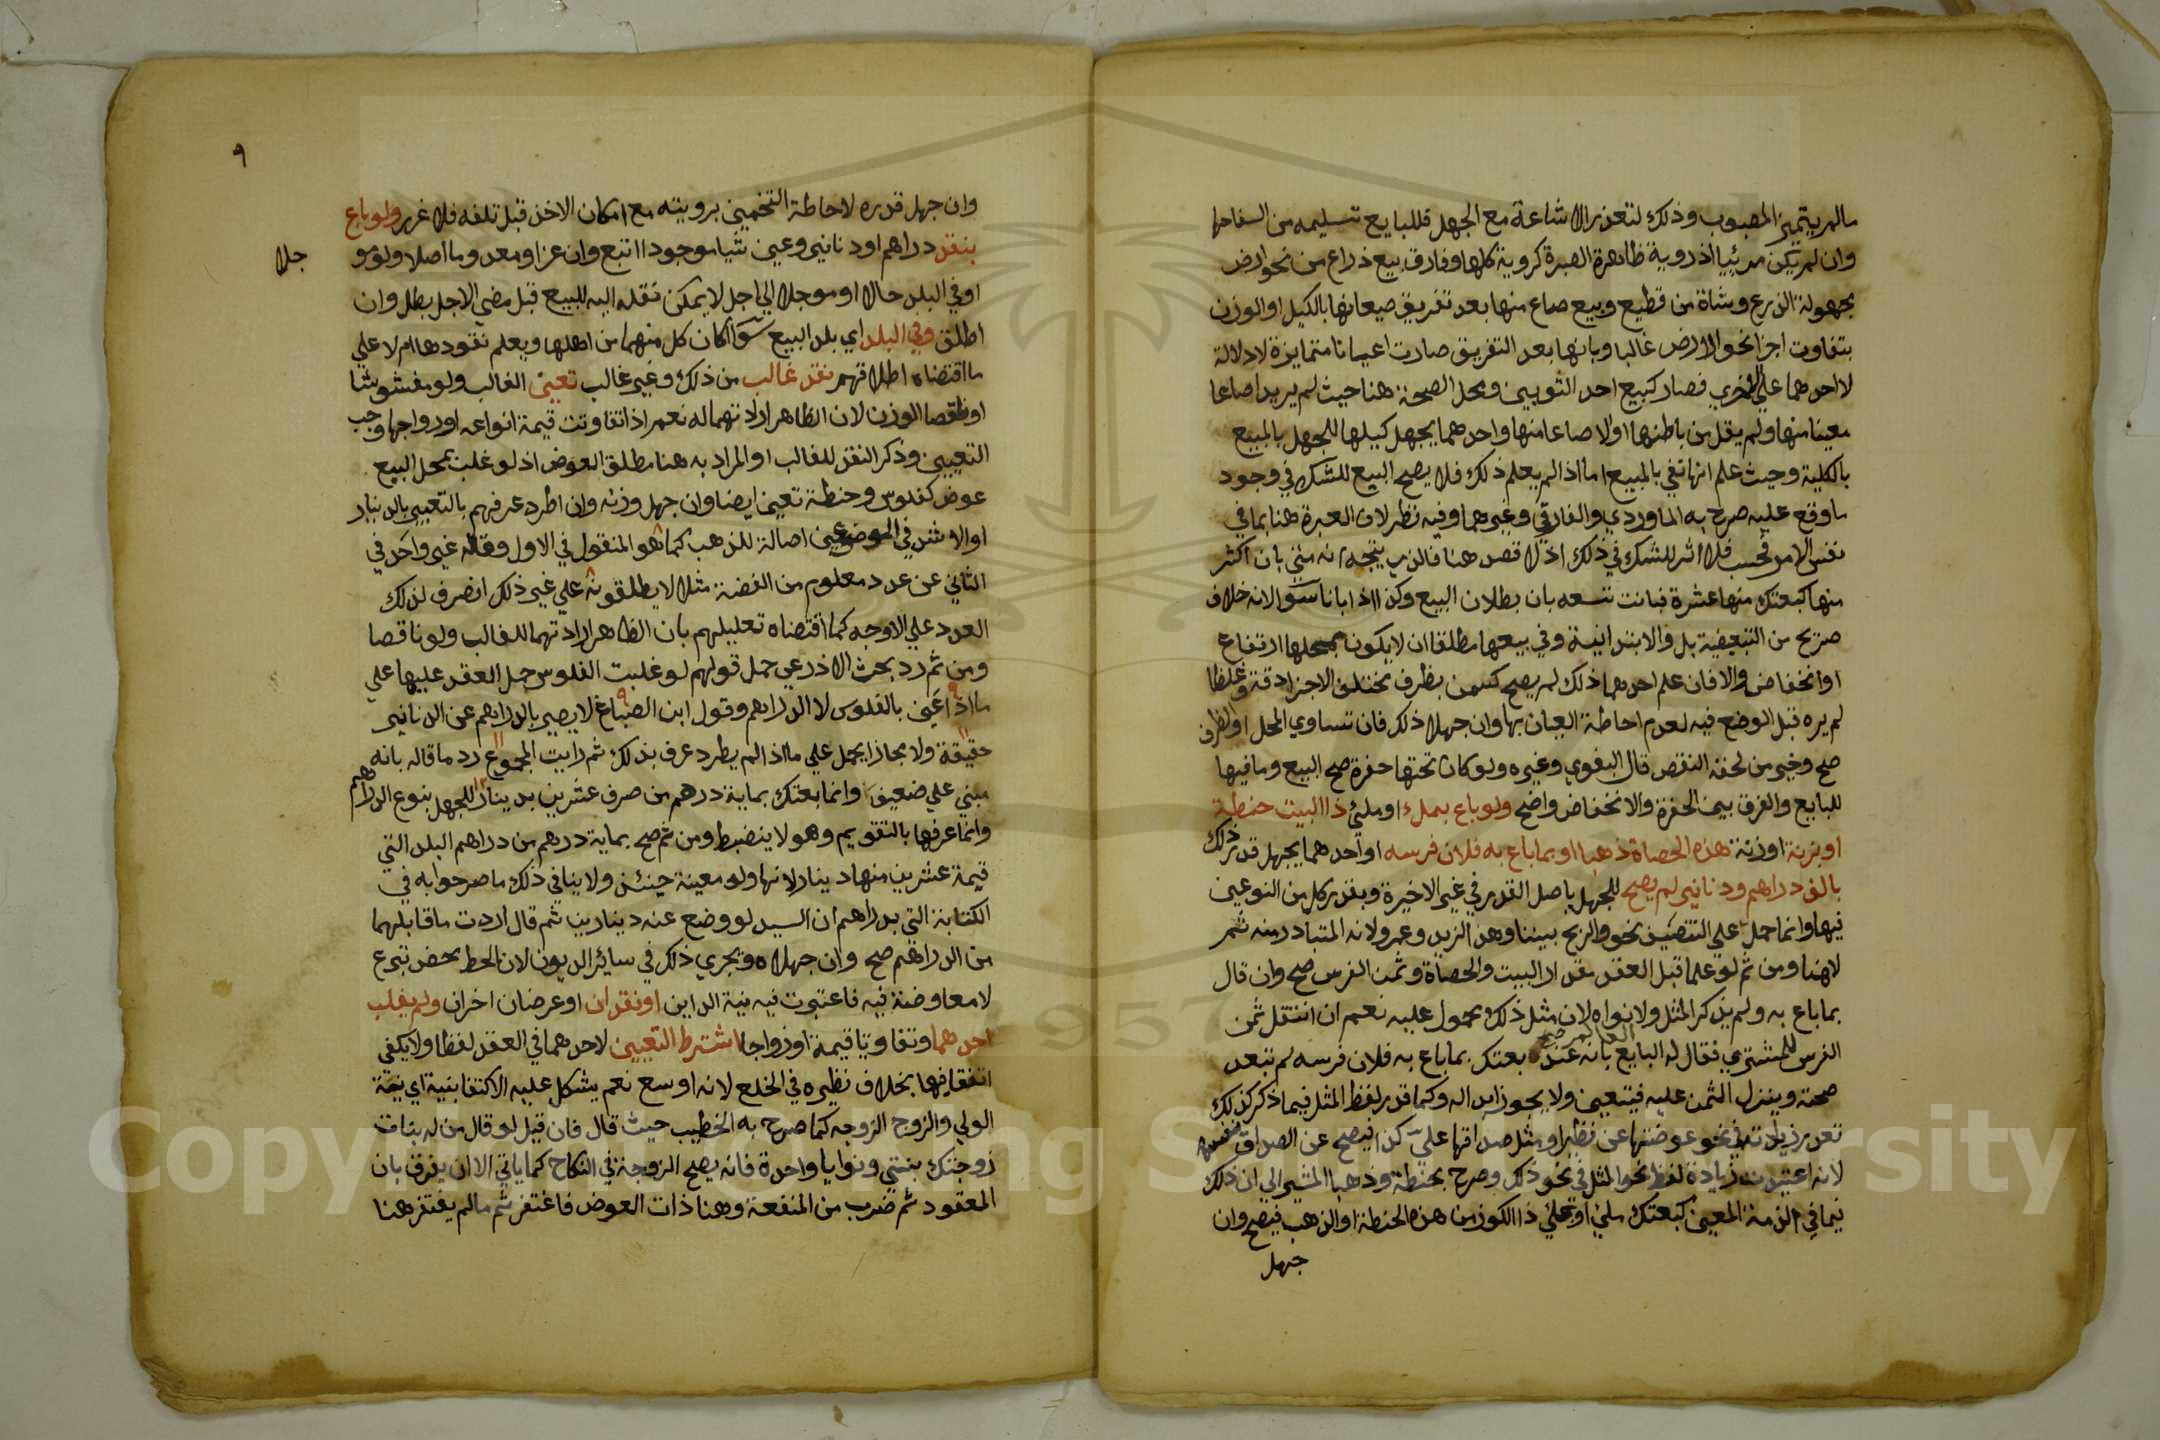 مالم يتميز المصبوب وذلك لتعذر الاشاعة مع الجهل فللبايع تسليمه من اسفلها
وان لم يكن مرئيا اذ روية ظاهرة الصبرة كروية كلها وفارق بيع ذراع من نحو ارض
مجهولة الذرع وشاة من قطيع وبيع صاع منها بعد تفريق صيعانها بالكيل او الوزن
بتفاوت اجزا نحو الارض غالبا وبانها بعد التفريق صارت اعيانا متمايزة لا دلالة
لاحدهما على الاخرى فصار كبيع احد الثوبين ومحل الصحة هنا حيث لم يريدا صاعا
معينا منها ولم يقل من باطنها اولا صاعا منها واحدهما يجهل كيلها للجهل بالمبيع
بالكلية وحيث علم انها تفي بالمبيع اما اذا لم يعلم ذلك فلا يصح البيع للشك في وجود
ما وقع عليه صرح به الماوردي والفارقي وغيرهما وفيه نظر لان العبرة هنا بما في
نفس الامر فحسب فلا اثر للشك في ذلك اذ لا قصد هنا فالذي يتجه انه متى بان اكثر
منها كبعتك منها عشرة فبانت تسعة بان بطلان البيع وكذا اذا بانا سوا لانه خلاف
صريح من التبعيضية بل والابتدائية وفي بيعها مطلقا ان لا يكون بمحلها ارتفاع
او انخفاض والا فان علم احدهما ذلك لم يصح كسمن بظرف مختلف الاجزا دقة وغلظا
لم يره قبل الوضع فيه لعدم احاطة العيان بها وان جهلا ذلك فان تساوي المحل او الظرف
صح وخير من لحقه النقص قال البغوي وغيره ولو كان تحتها حفرة صح البيع وما فيها
للبايع والفرق بين الحفرة والانخفاض واضح ولو باع بملء او ملئ ذا البيت حنطة
او بزنة او زنة هذه الحصاة ذهبا او بما باع به فلان فرسه او احدهما يجهل قدر ذلك
بالف دراهم ودنانير لم يصح للجهل باصل القدر في غير الاخيرة وبقدر كل من النوعين
فيها وانما حمل على التنصيف نحو والربح بيننا وهذا لزيد وعمرو لانه المتبادر منه ثمر
لا هنا ومن ثم لو علما قبل العقد مقدار البيت والحصاة وثمن الفرس صح وان قال
بما باع به ولم يذكر المثل ولا نواه لان مثل ذلك محمول عليه نعم ان انتقل ثمن
الفرس للمشتري فقال له البايع العالم بانه عنده بعتك بما باع به فلان فرسه لم تبعد
صحته وينزل الثمن عليه فيتعين ولا يجوز ابداله وكما قدر لفظ المثل فيما ذكر كذلك
تعذر زيادته في نحو عوضتها عن نظير او مثل صداقها على كذا فيصح عن الصداق نفسه
لانه اعتيدت زيادة لفظ نحو المثل في نحو ذلك وصرح بحنطة وذهبا المشير الى ان ذلك
فيما في الذمة المعين كبعتك ملئ او بملئ ذا الكوز من هذه الحنطة او الذهب فيصح وان
جهل
٩
وان جهل قدره لاحاطة التخمين برويته مع امكان الاخذ قبل تلفه فلا غرر ولو باع
بنقد دراهم او دنانير وعين شيا موجودا اتبع وان عز او معدوما اصلا ولو مو
جلا
او في البلد حالا او موجلا الى اجل لا يمكن نقله اليه للبيع قبل مضي الاجل بطل وان
اطلق وفي البلد اي بلد البيع سوا اكان كل منهما من اهلها ويعلم نقودها ام لا على
ما اقتضاه اطلاقهم نقد غالب من ذلك وغير غالب تعين الغالب ولو مغشوشا
او ناقصا الوزن لان الظاهر ارادتهما له نعم اذا تفاوتت قيمة انواعه او رواجها وجب
التعيين وذكر النقد للغالب او المراد به هنا مطلق العوض اذ لو غلب بمحل البيع
عوض كفلوس وحنطة تعين ايضا وان جهل وزنه وان اطرد عرفهم بالتعبير بالدينار
او الاشرفي الموضوعين اصالة للذهب كما هو المنقول في الاول وقاله غير واحد في
الثاني عن عدد معلوم من الفضة مثلا لا يطلقونه على غير ذلك انصرف لذلك
العدد على الاوجه كما اقتضاه تعليلهم بان الظاهر ارادتهما للغالب ولو ناقصا
ومن ثم رد بحث الاذرعي حمل قولهم لو غلبت الفلوس حمل العقد عليها على
ما اذا عين بالفلوس لا الدراهم وقول ابن الصباغ لا يعبر بالدراهم عن الدنانير
حقيقة ولا مجازا يحمل على ما اذا لم يطرد عرف بذلك ثم رايت المجموع رد ما قاله بانه
مبني على ضعيف وانما بعتك بماية درهم من صرف عشرين بدينار للجهل بنوع الدراهم
وانما عرفها بالتقويم وهو لا ينضبط ومن ثم صح بماية درهم من دراهم البلد التي
قيمة عشرين منها دينار لانها ولو معينة حينئذ ولا ينافي ذلك ما صرحوا به في
الكتابة التي بدراهم ان السيد لو وضع عنه دينارين ثم قال اردت ما قابلهما
من الدراهم صح وان جهلاه ويجري ذلك في ساير الديون لان الحط محض تبرع
لا معاوضة فيه فاعتبرت فيه نية الداين او نقدان او عرضان اخران ولم يغلب
احدهما وتفاوتا قيمة او رواجا اشترط التعيين لاحدهما في العقد لفظا ولا يكفي
اتفاقهما بخلاف نظيره في الخلع لانه اوسع نعم يشكل عليه الاكتفا بنية اي نية
الولي والزوج الزوجة كما صرح به الخطيب حيث قال فان قيل لو قال من له بنات
زوجتك بنتي ونوايا واحدة فانه يصح الزوجة في النكاح كما ياتي الا ان يفرق بان
المعقود ثم ضرب من المنفعة وهنا ذات العوض فاغتفر ثم ما لم يغتفر هنا
Copyright © King Saud University
1957